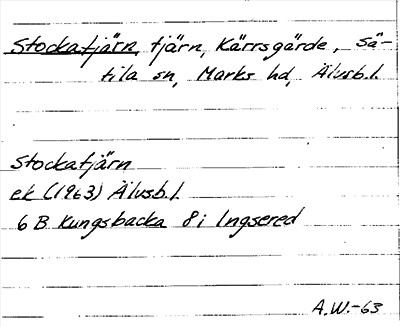 Stockatjärn, tjärn, Kärrsgärde, Sä-
tila sn, Marks hd, Älvsb.l.
Stockatjärn
ek (1963) Älvsb.l.
6 B Kungsbacka 8 i Ingsered
A.W.-63